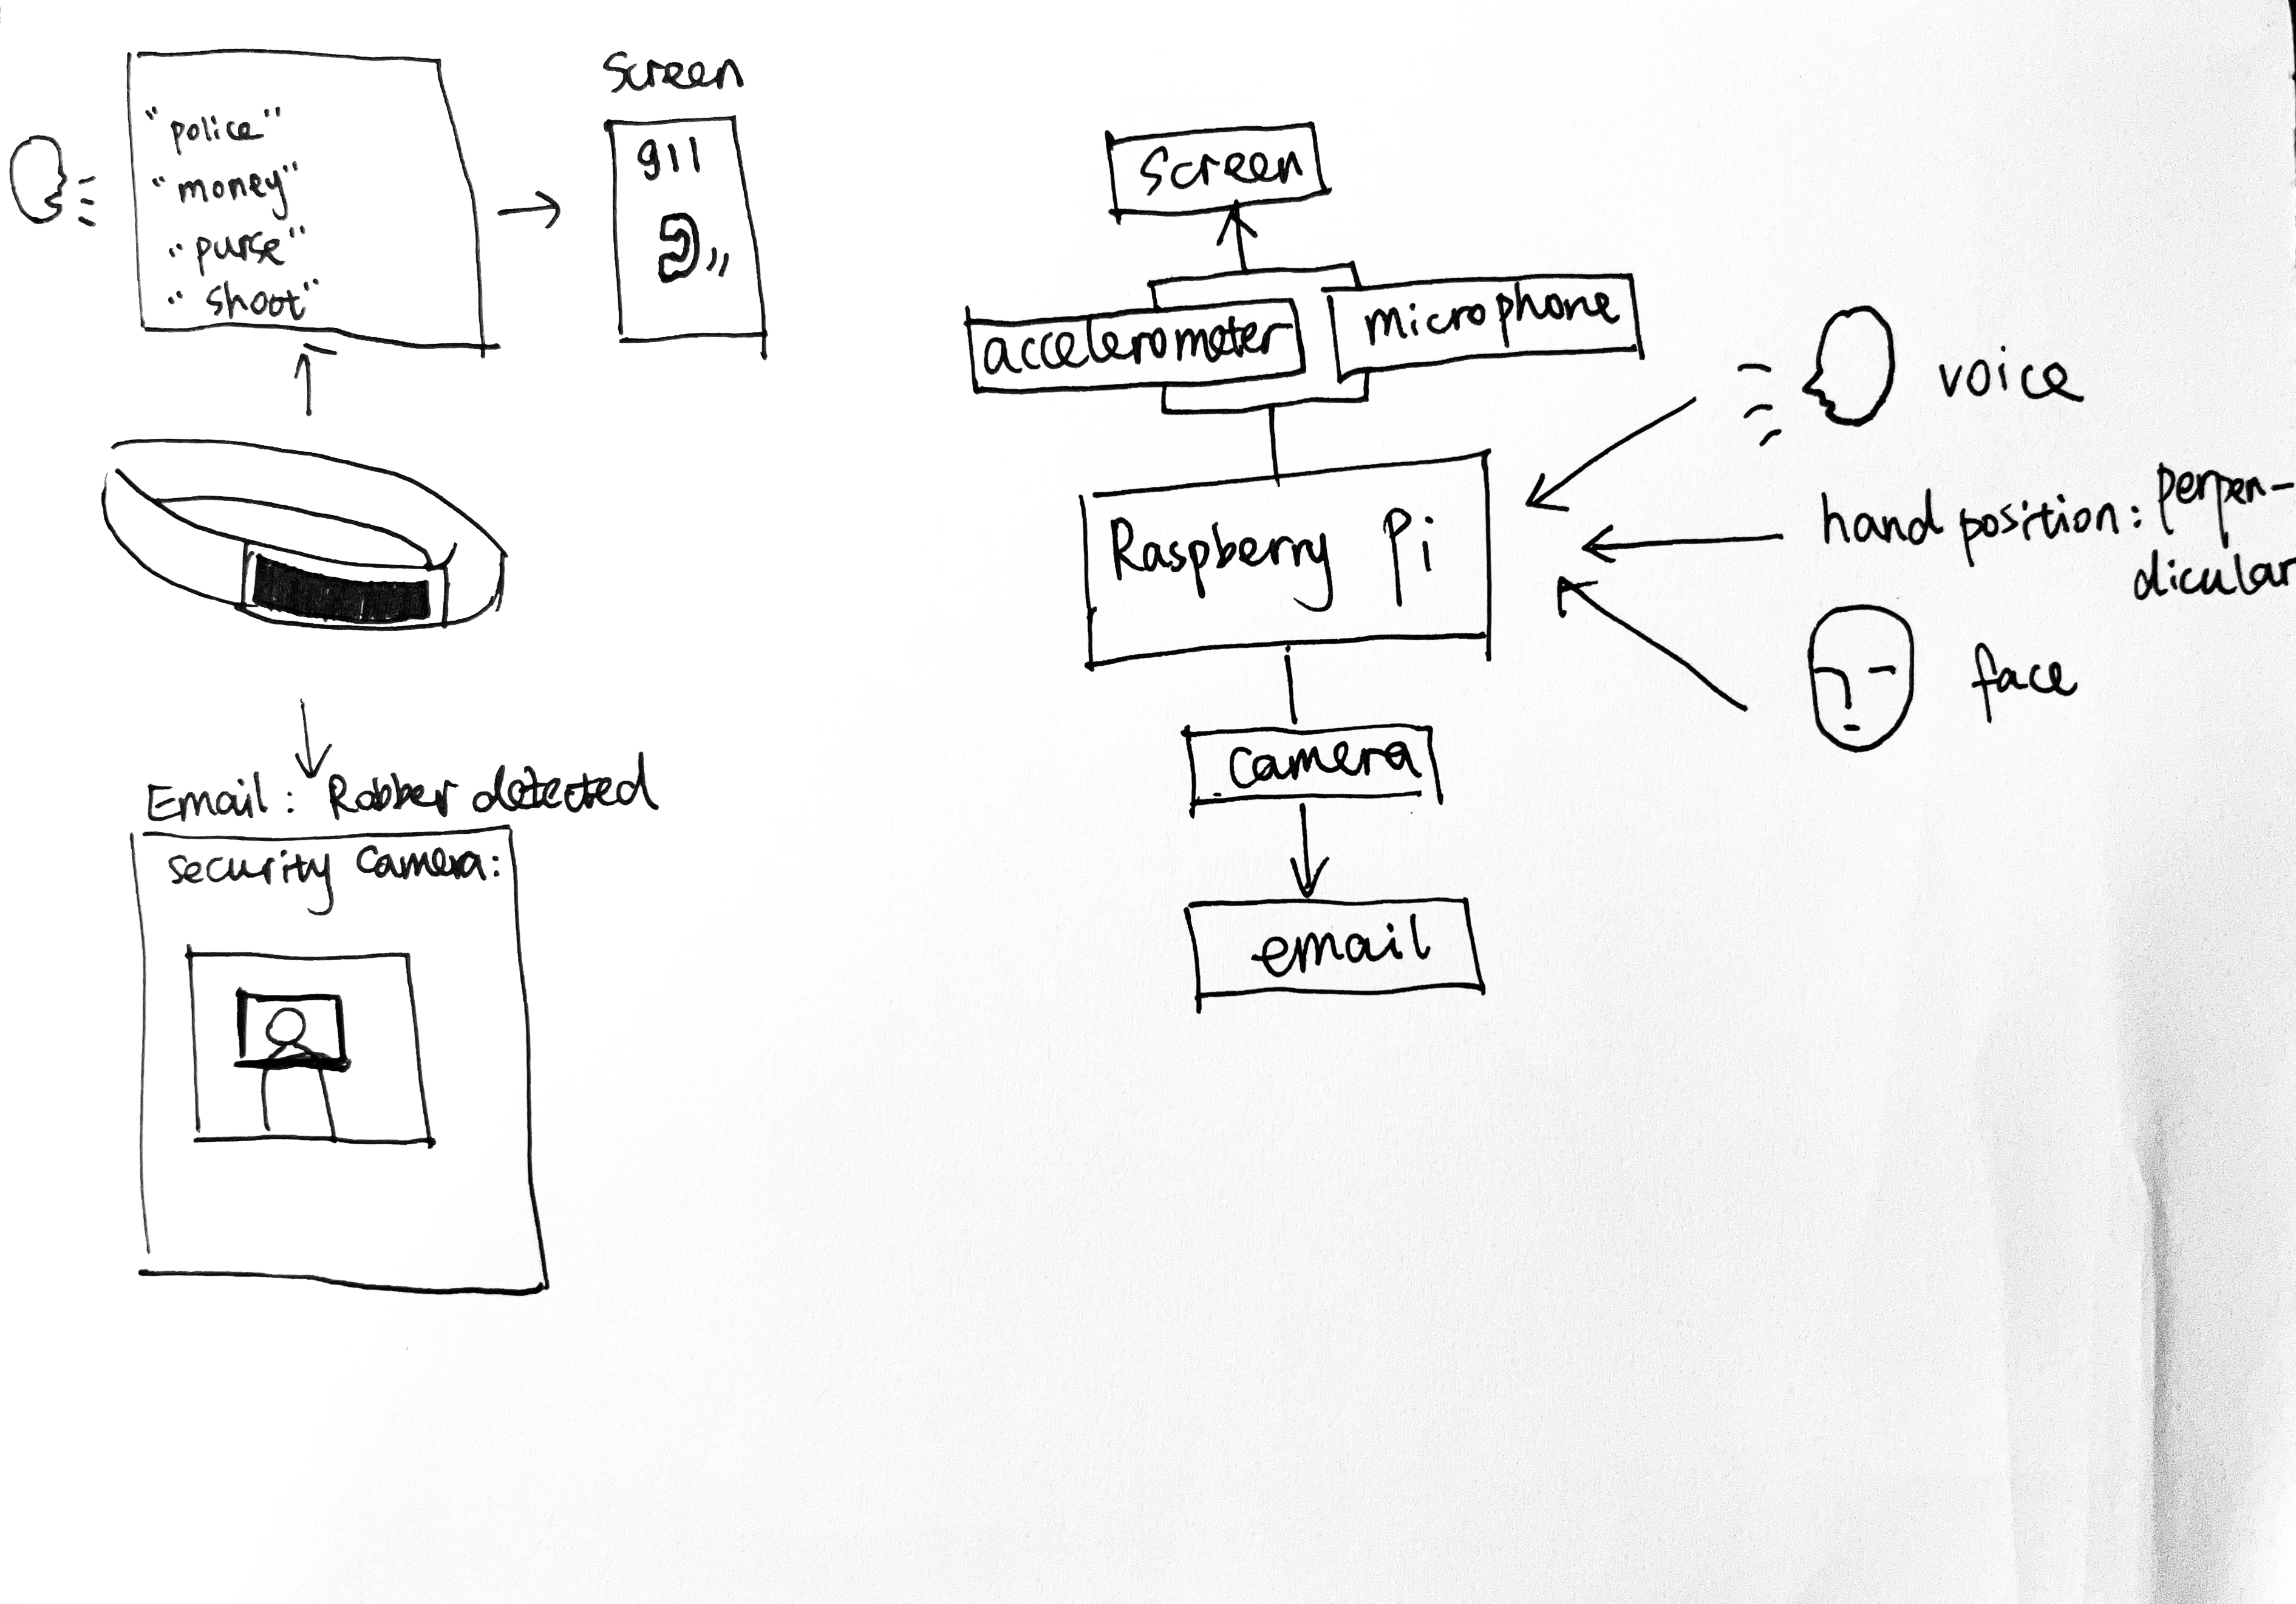 "police"
"money"
"purse"
"shoot"
Screen
911
Email: Robber detected
security Camera:
Screen
accelerometer
microphone
Raspberry Pi
camera
email
voice
hand position: perpen-
dicular
face